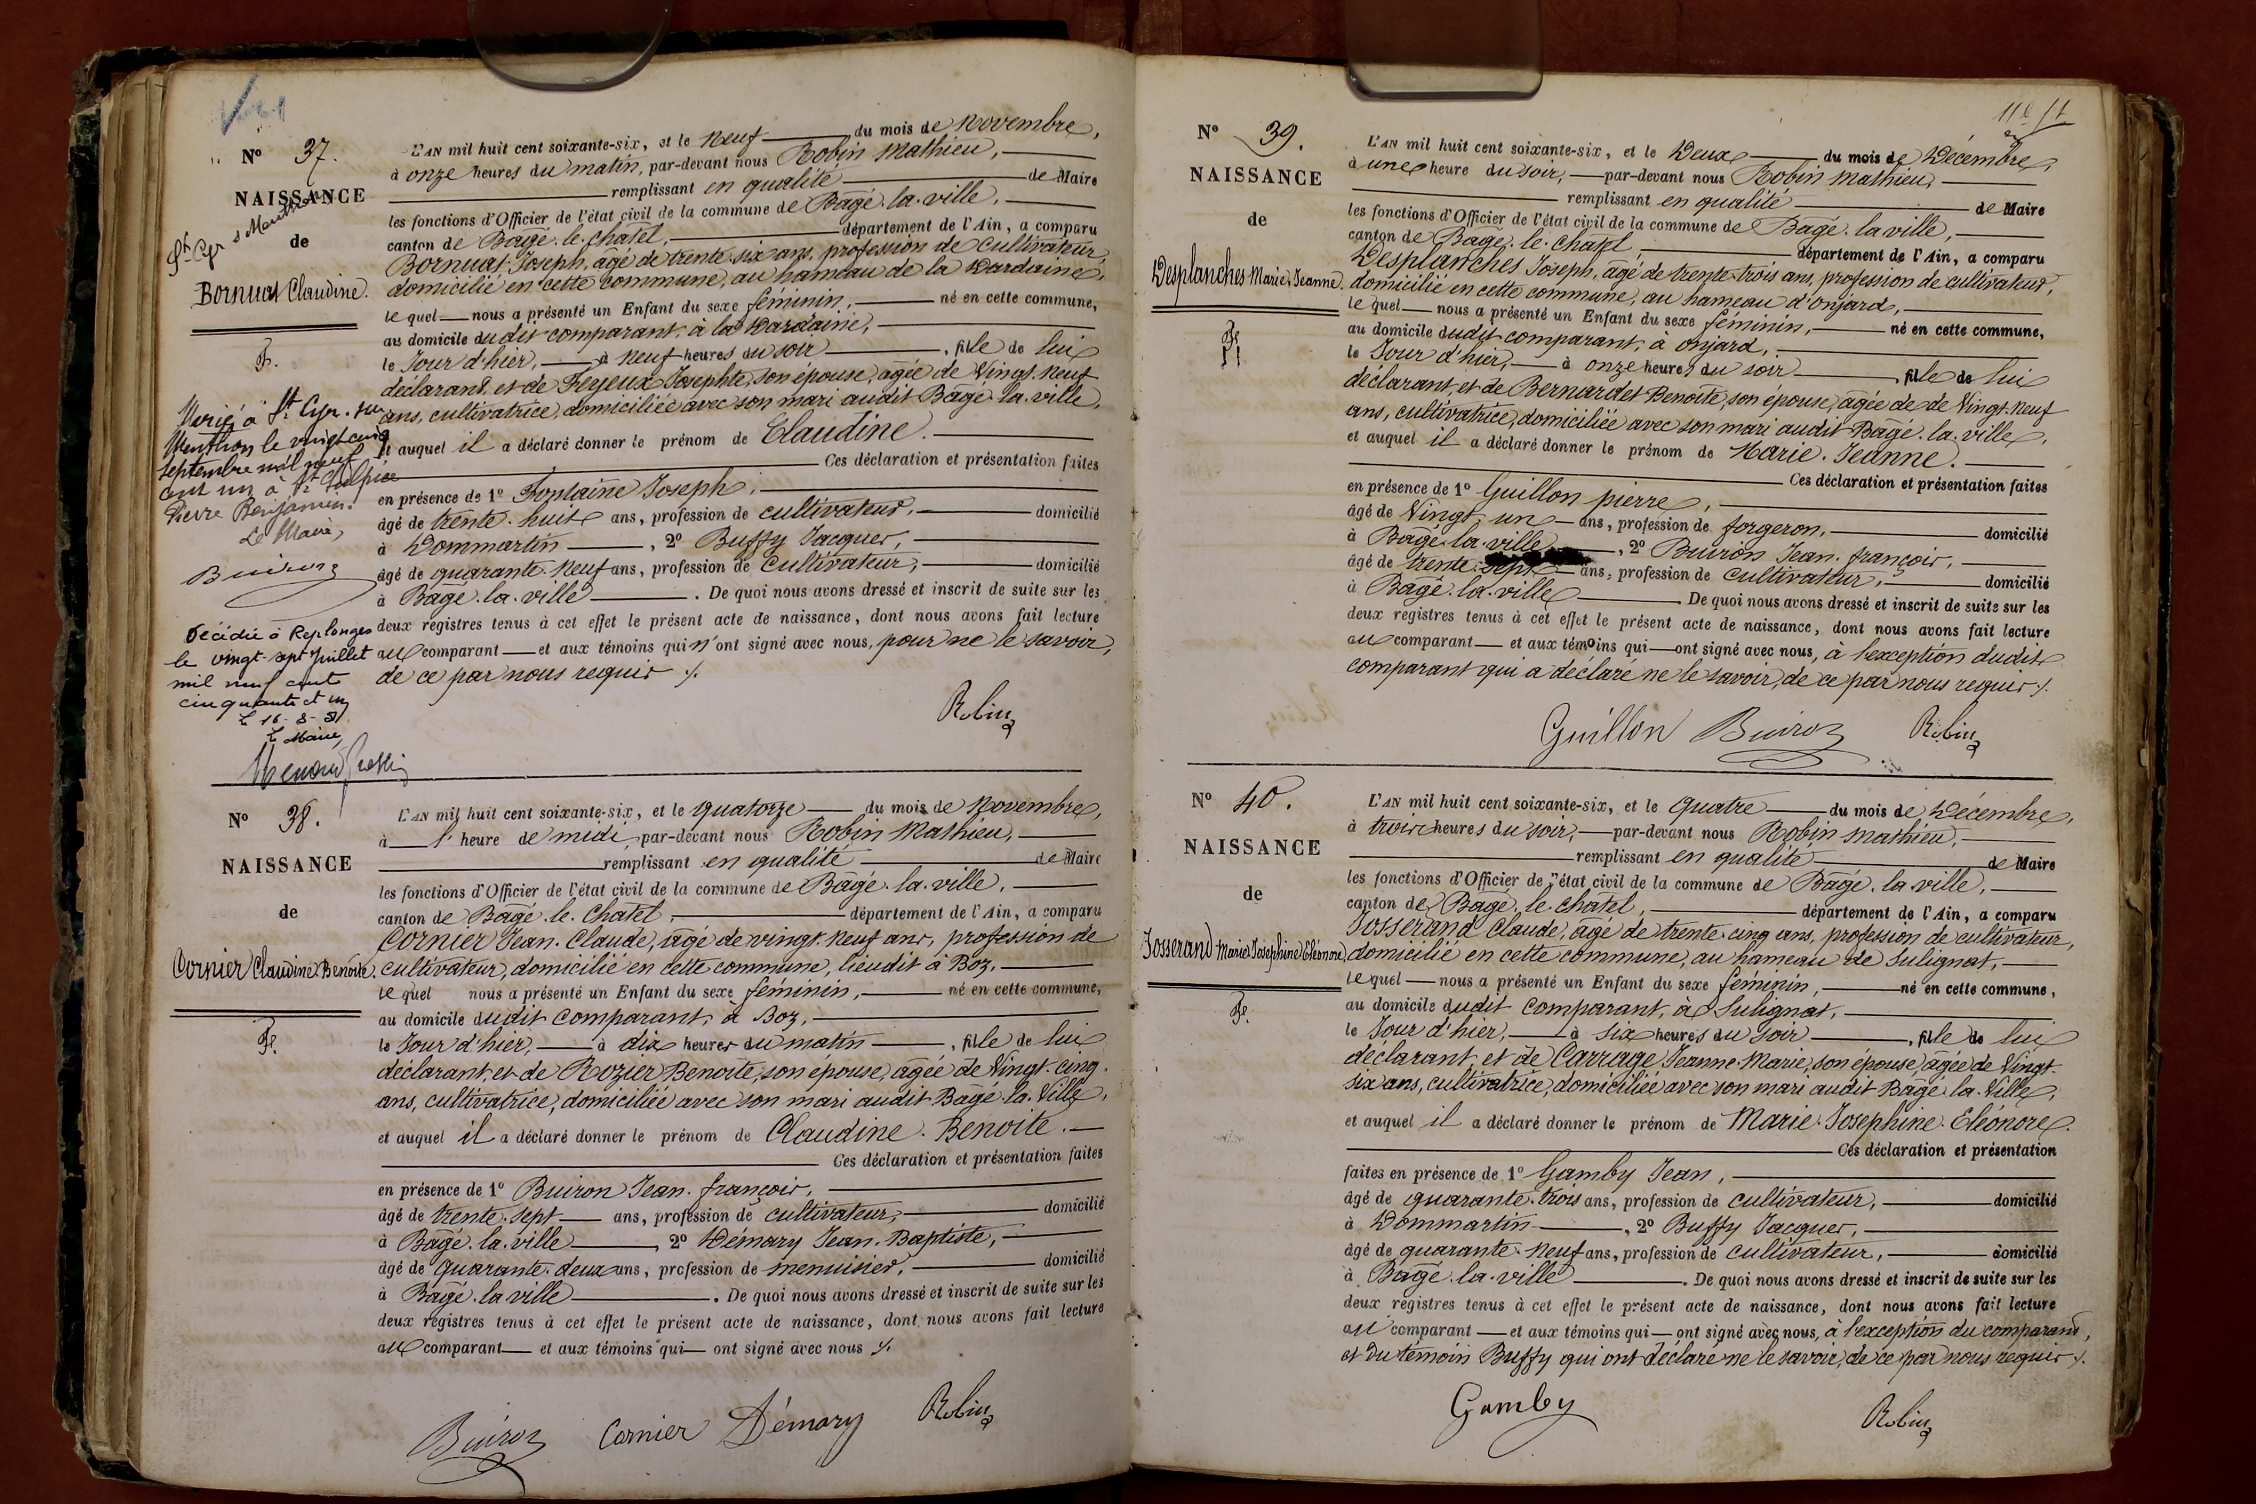 N° 37.
NAISSANCE
St Cyr s Menthon
de
Bornuat Claudine.
F.
L'AN mil huit cent soixante-six, et le Neuf du mois de Novembre,
à onze heures du matin, par-devant nous Robin Mathieu,
remplissant en qualité de Maire
les fonctions d'Officier de l'état civil de la commune de Bagé-la-ville,
canton de Bagé-le-Chatel, département de l'Ain, a comparu
Bornuat Joseph, âgé de trente-six ans, profession de cultivateur,
domicilié en cette commune, au hameau de la Dardaine,
le quel nous a présenté un Enfant du sexe féminin, né en cette commune,
au domicile dudit comparant, à la Dardaine,
le Jour d'hier, à neuf heures du soir, fille de lui
déclarant, et de Feyeux Josephte, son épouse, agée de Vingt-neuf
ans, cultivatrice, domiciliée avec son mari audit Bagé-la-ville,
et auquel il a déclaré donner le prénom de Claudine.
Ces déclaration et présentation faites
en présence de 1° Fontaine Joseph,
âgé de trente-huit ans, profession de cultivateur, domicilié
à Dommartin, 2° Buffy Jacques,
âgé de quarante-neuf ans, profession de cultivateur, domicilié
à Bagé-la-ville. De quoi nous avons dressé et inscrit de suite sur les
deux registres tenus à cet effet le présent acte de naissance, dont nous avons fait lecture
au comparant et aux témoins qui n'ont signé avec nous, pour ne le savoir,
de ce par nous requis ./.
Robin
Marié à St Cyr-sur
Menthon le vingt cinq
septembre mil neuf
cent un à
Pierre Benjamin.
Le Maire,
Buiron
Décédée à Replonges
le vingt-sept Juillet
mil neuf cent
cinquante et un
Le 16-8-51
Le Maire,
N° 38.
NAISSANCE
de
Cornier Claudine Benoite.
F.
L'AN mil huit cent soixante-six, et le quatorze du mois de Novembre,
à l'heure de midi, par-devant nous Robin Mathieu,
remplissant en qualité de Maire
les fonctions d'Officier de l'état civil de la commune de Bagé-la-ville,
canton de Bagé-le-Chatel, département de l'Ain, a comparu
Cornier Jean-Claude, âgé de vingt-neuf ans, profession de
cultivateur, domicilié en cette commune, lieudit à Boz,
le quel nous a présenté un Enfant du sexe féminin, né en cette commune,
au domicile dudit comparant, à Boz,
le Jour d'hier, à dix heures du matin, fille de lui
déclarant, et de Rozier Benoite, son épouse, agée de Vingt-cinq
ans, cultivatrice, domiciliée avec son mari audit Bagé-la-Ville,
et auquel il a déclaré donner le prénom de Claudine-Benoite.
Ces déclaration et présentation faites
en présence de 1° Buiron Jean-françois,
âgé de trente-sept ans, profession de cultivateur, domicilié
à Bagé-la-ville, 2° Démary Jean-Baptiste,
âgé de quarante-deux ans, profession de menuisier, domicilié
à Bagé-la-ville. De quoi nous avons dressé et inscrit de suite sur les
deux registres tenus à cet effet le présent acte de naissance, dont nous avons fait lecture
au comparant et aux témoins qui ont signé avec nous ./.
Buiron Cornier Démary Robin
N° 39.
NAISSANCE
de
Desplanches Marie-Jeanne.
F.
L'AN mil huit cent soixante-six, et le Deux du mois de Décembre,
à une heure du soir, par-devant nous Robin Mathieu,
remplissant en qualité de Maire
les fonctions d'Officier de l'état civil de la commune de Bagé-la-ville,
canton de Bagé-le-Chatel, département de l'Ain, a comparu
Desplanches Joseph, âgé de trente-trois ans, profession de cultivateur,
domicilié en cette commune, au hameau d'onjard,
le quel nous a présenté un Enfant du sexe féminin, né en cette commune,
au domicile dudit comparant, à onjard,
le Jour d'hier, à onze heures du soir, fille de lui
déclarant, et de Bernardet Benoite, son épouse, agée de de Vingt-neuf
ans, cultivatrice, domiciliée avec son mari audit Bagé-la-ville,
et auquel il a déclaré donner le prénom de Marie-Jeanne.
Ces déclaration et présentation faites
en présence de 1° Guillon pierre,
âgé de Vingt-un ans, profession de forgeron, domicilié
à Bagé-la-ville, 2° Buiron Jean-françois,
âgé de trente-sept ans, profession de cultivateur, domicilié
à Bagé-la-ville. De quoi nous avons dressé et inscrit de suite sur les
deux registres tenus à cet effet le présent acte de naissance, dont nous avons fait lecture
au comparant et aux témoins qui ont signé avec nous, à l'exception dudit
comparant qui a déclaré ne le savoir, de ce par nous requis ./.
Guillon Buiron Robin
N° 40.
NAISSANCE
de
Josserand Marie Josephine Eléonore
F.
L'AN mil huit cent soixante-six, et le Quatre du mois de Décembre,
à trois heures du soir, par-devant nous Robin Mathieu,
remplissant en qualité de Maire
les fonctions d'Officier de l'état civil de la commune de Bagé-la-ville,
canton de Bagé-le-Chatel, département de l'Ain, a comparu
Josserand Claude, âgé de trente-cinq ans, profession de cultivateur,
domicilié en cette commune, au hameau de Sulignat,
le quel nous a présenté un Enfant du sexe féminin, né en cette commune,
au domicile dudit comparant, à Sulignat,
le Jour d'hier, à six heures du soir, fille de lui
déclarant, et de Carrage Jeanne-Marie, son épouse, agée de Vingt-
six ans, cultivatrice, domiciliée avec son mari audit Bagé-la-Ville,
et auquel il a déclaré donner le prénom de Marie-Josephine-Eléonore.
Ces déclaration et présentation
faites en présence de 1° Gamby Jean,
âgé de quarante-trois ans, profession de cultivateur, domicilié
à Dommartin, 2° Buffy Jacques,
âgé de quarante-neuf ans, profession de cultivateur, domicilié
à Bagé-la-ville. De quoi nous avons dressé et inscrit de suite sur les
deux registres tenus à cet effet le présent acte de naissance, dont nous avons fait lecture
au comparant et aux témoins qui ont signé avec nous, à l'exception du comparant,
et du témoin Buffy qui ont déclaré ne le savoir, de ce par nous requis ./.
Gamby Robin